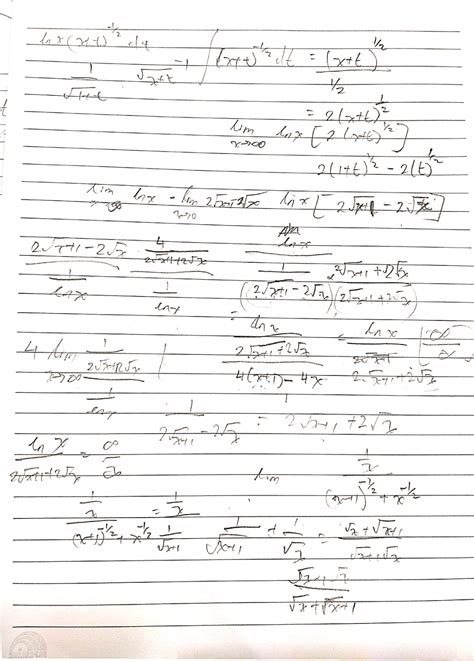 ln x (x+t)^{-1/2} dt
1/√(1+t)   1/√(x+t)   ∫ (x+t)^{-1/2} dt = (x+t)^{1/2} / (1/2)
= 2(x+t)^{1/2}
lim x→∞ ln x [2(x+t)^{1/2}]
2(1+t)^{1/2} - 2(t)^{1/2}
lim →∞ ln x - lim 2√x+1 2√x   ln x [2√x+1 - 2√x]
2√x+1 - 2√x   4/(2√x+1 + 2√x)   ln x   2√x+1 + 2√x
1/ln x   1/ln x   (2√x+1 - 2√x)(2√x+1 + 2√x)
= ln x   = ln x   ∞/∞
4 lim x→∞ 1/(2√x+1 + 2√x)   2√x+1 + 2√x   2√x+1 + 2√x
4(x+1) - 4x
1/ln x   1/(2√x+1 - 2√x) = 2√x+1 + 2√x
ln x/(2√x+1 + 2√x) = ∞/∞   lim   (1/x)/((x+1)^{-1/2} + x^{-1/2})
(1/x)/((x+1)^{-1/2} + x^{-1/2}) = 1/x   1/√x+1   1/√x+1 + 1/√x = (√x + √x+1)/(√x+1 √x)
√x+1 √x
√x + √x+1